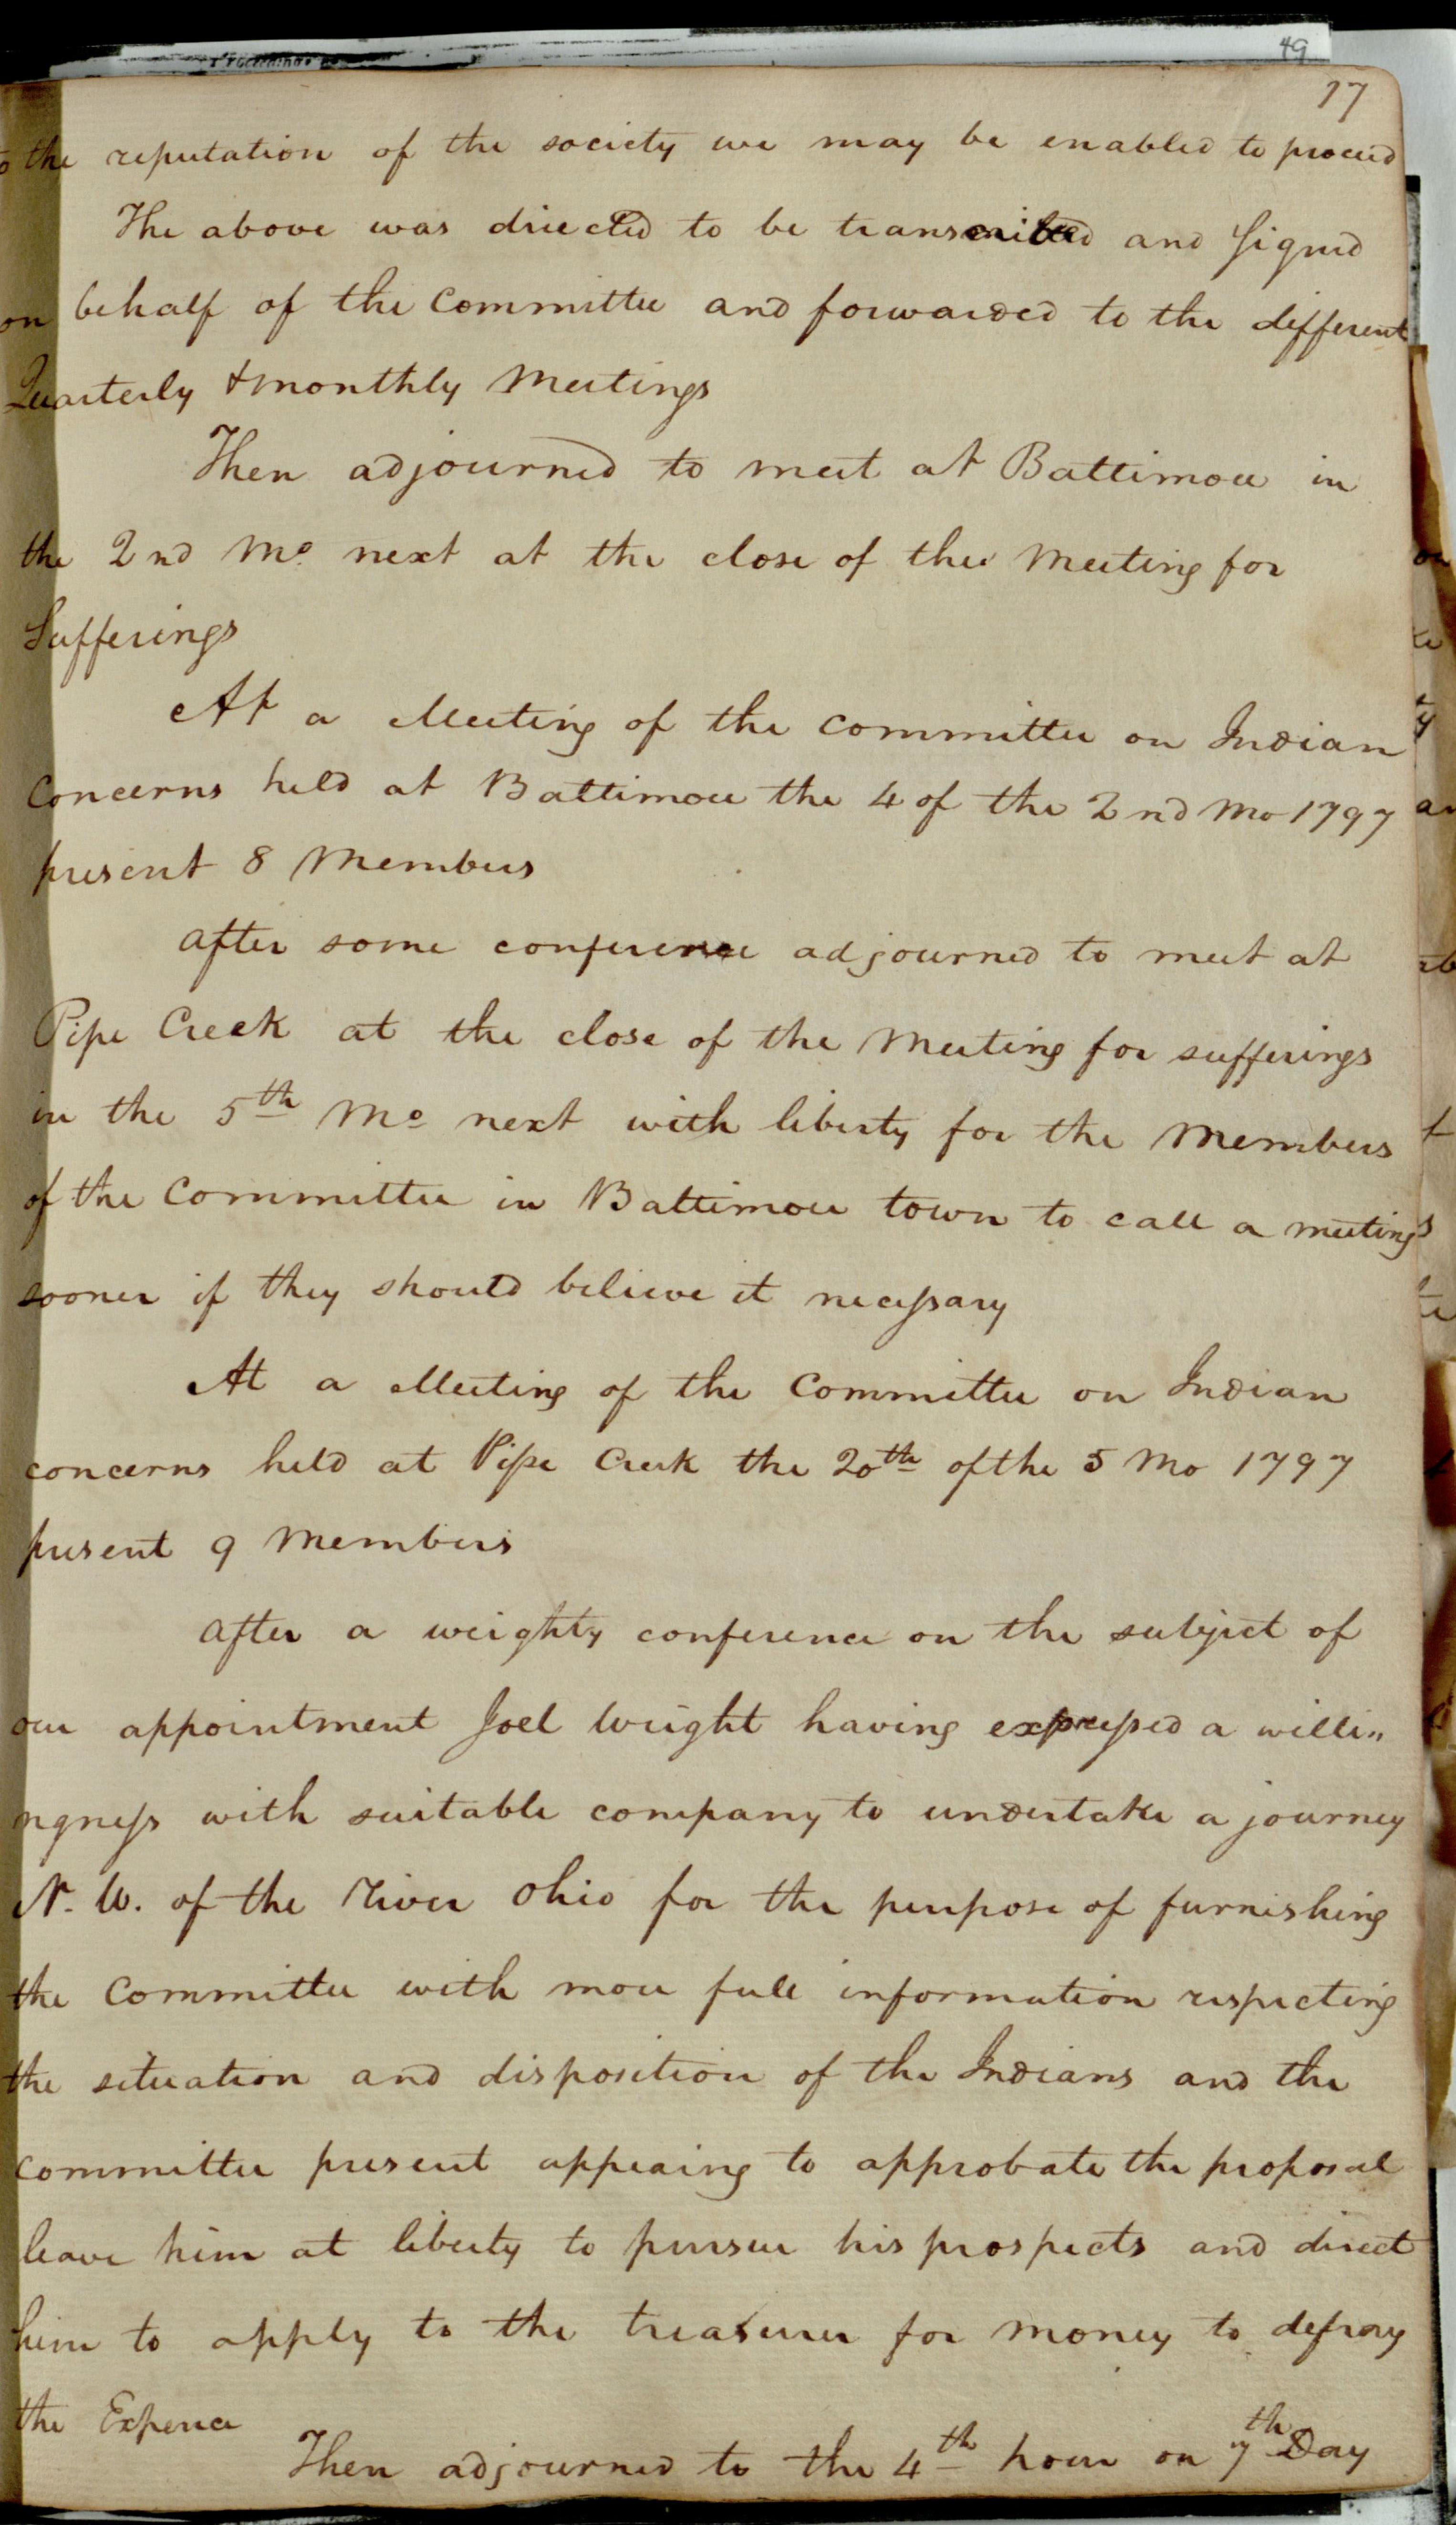 49
17
to the reputation of the society we may be enabled to proceed
The above was directed to be transcribed and signed
on behalf of the Committee and forwarded to the different
Quarterly & monthly Meetings
Then adjourned to meet at Baltimore in
the 2nd Mo. next at the close of the Meeting for
Sufferings
At a Meeting of the Committee on Indian
Concerns held at Baltimore the 4 of the 2nd Mo 1797
present 8 Members
after some conference adjourned to meet at
Pipe Creek at the close of the Meeting for sufferings
in the 5th Mo next with liberty for the Members
of the Committee in Baltimore town to call a meeting
sooner if they should believe it necessary
At a Meeting of the Committee on Indian
concerns held at Pipe Creek the 20th of the 5 Mo 1797
present 9 Members
after a weighty conference on the subject of
our appointment Joel Wright having expressed a willi"
ngness with suitable company to undertake a journey
N. W. of the River Ohio for the purpose of furnishing
the Committee with more full information respecting
the situation and disposition of the Indians and the
committee present appearing to approbate the proposal
leave him at liberty to pursue his prospects and direct
him to apply to the treasurer for money to defray
the Expence
Then adjourned to the 4th hour on 7th Day